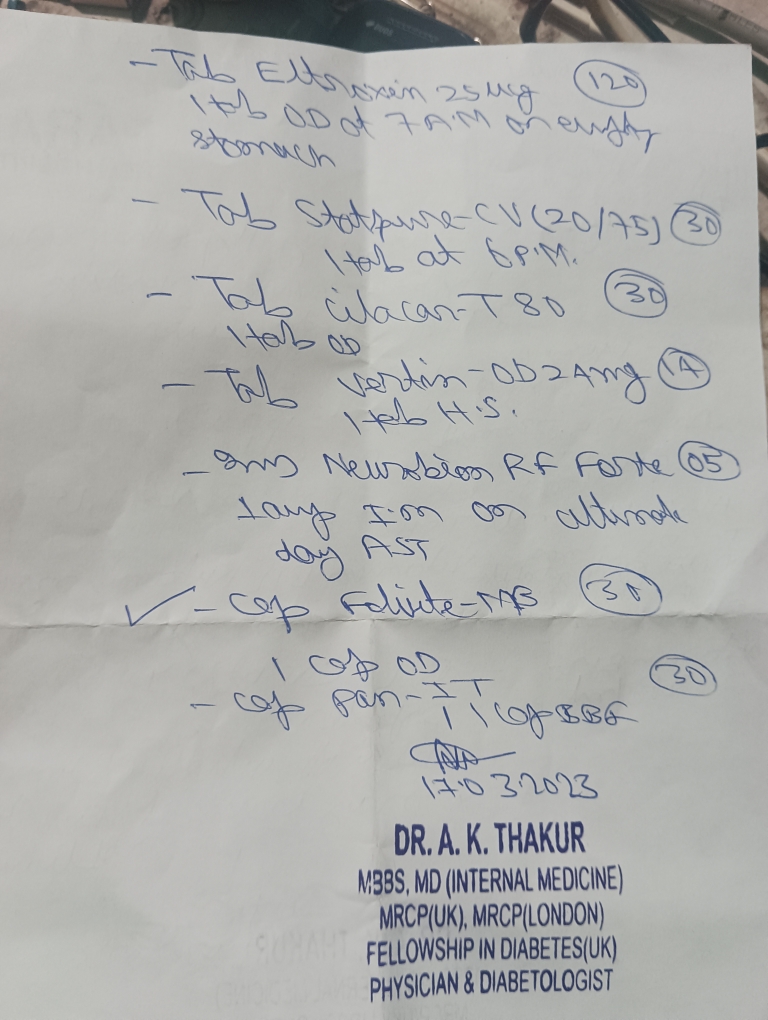 - Tab Eltroxin 25ug (120)
1 tab OD at 7 A.M on empty
stomach
- Tab Statpure-CV (20/75) (30)
1 tab at 6 P.M.
- Tab Cilacar-T 80 (30)
1 tab OD
- Tab Vertin-OD 24mg (14)
1 tab H.S.
- Inj Neurobion RF Forte (05)
1 amp I.m on alternate
day AST
- Cap Folvite-MB (30)
1 cap OD
- Cap Pan- (30)
1 cap BBF
17.03.2023
DR. A. K. THAKUR
MBBS, MD (INTERNAL MEDICINE)
MRCP(UK), MRCP(LONDON)
FELLOWSHIP IN DIABETES(UK)
PHYSICIAN & DIABETOLOGIST